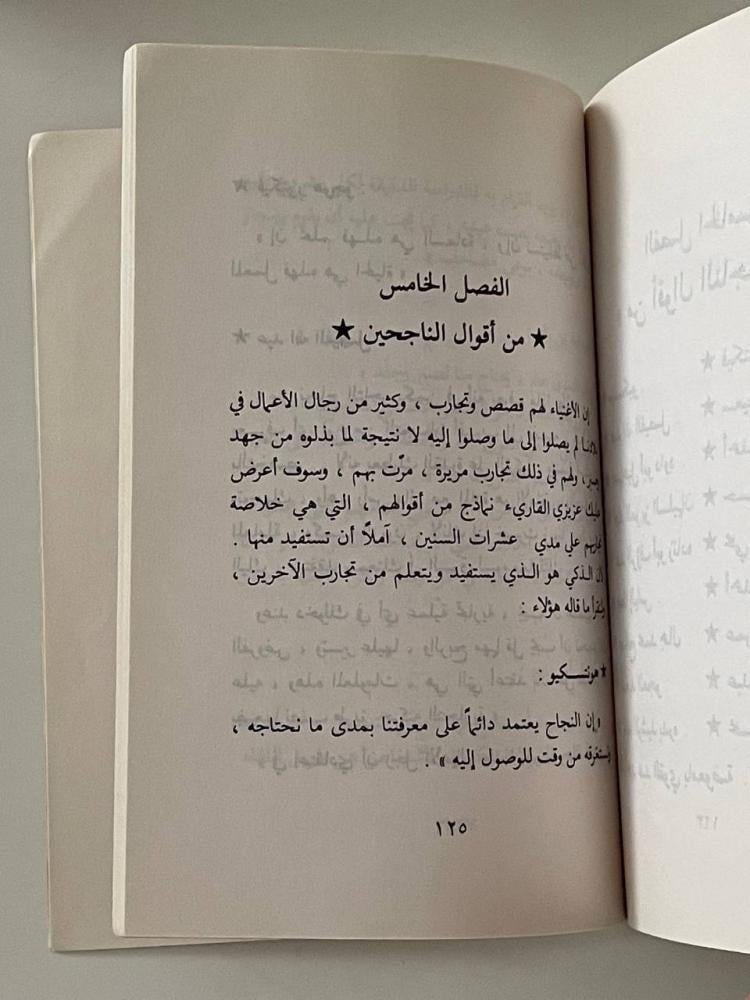 الفصل الخامس
★ من أقوال الناجحين ★
إن الأغنياء لهم قصص وتجارب ، وكثير من رجال الأعمال في
لم يصلوا إلى ما وصلوا إليه لا نتيجة لما بذلوه من جهد
، ولهم في ذلك تجارب مريرة ، مرّت بهم ، وسوف أعرض
عليك عزيزي القاريء نماذج من أقوالهم ، التي هي خلاصة
تجاربهم علي مدي عشرات السنين ، آملاً أن تستفيد منها .
لأن الذكي هو الذي يستفيد ويتعلم من تجارب الآخرين ،
ولنقرأ ما قاله هؤلاء :
★ مونتسكيو :
« إن النجاح يعتمد دائماً على معرفتنا بمدى ما نحتاجه ،
ونستغرقه من وقت للوصول إليه » .
١٢٥